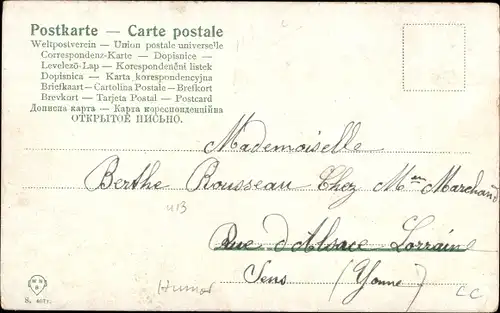 Postkarte — Carte postale
Weltpostverein — Union postale universelle
Correspondenz-Karte — Dopisnice —
Levelező-Lap — Korespondenční lístek
Dopisnica — Karta korespondencyjna
Briefkaart — Cartolina Postale — Brefkort
Brevkort — Tarjeta Postal — Postcard
Дописна карта — Карта кореспонденційна
ОТКРЫТОЕ ПИСЬМО.
Mademoiselle
Berthe Rousseau Chez Mme Marchand
413
Rue d'Alsace Lorraine
Sens (Yonne)
Humor
CC